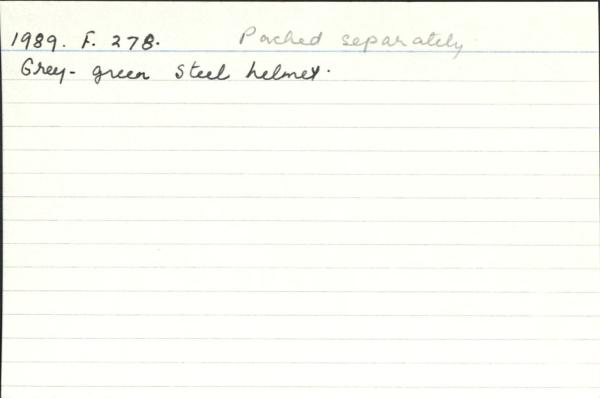 1989. F. 278. Packed separately
Grey-green steel helmet.